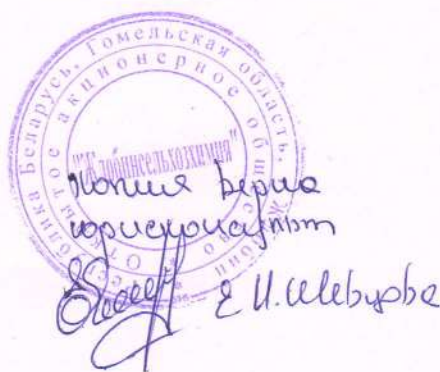 Республика Беларусь, Гомельская область,
Открытое акционерное общество
"Жлобинсельхозхимия"
Копия верна
юрисконсульт
Е.И. Шевцова